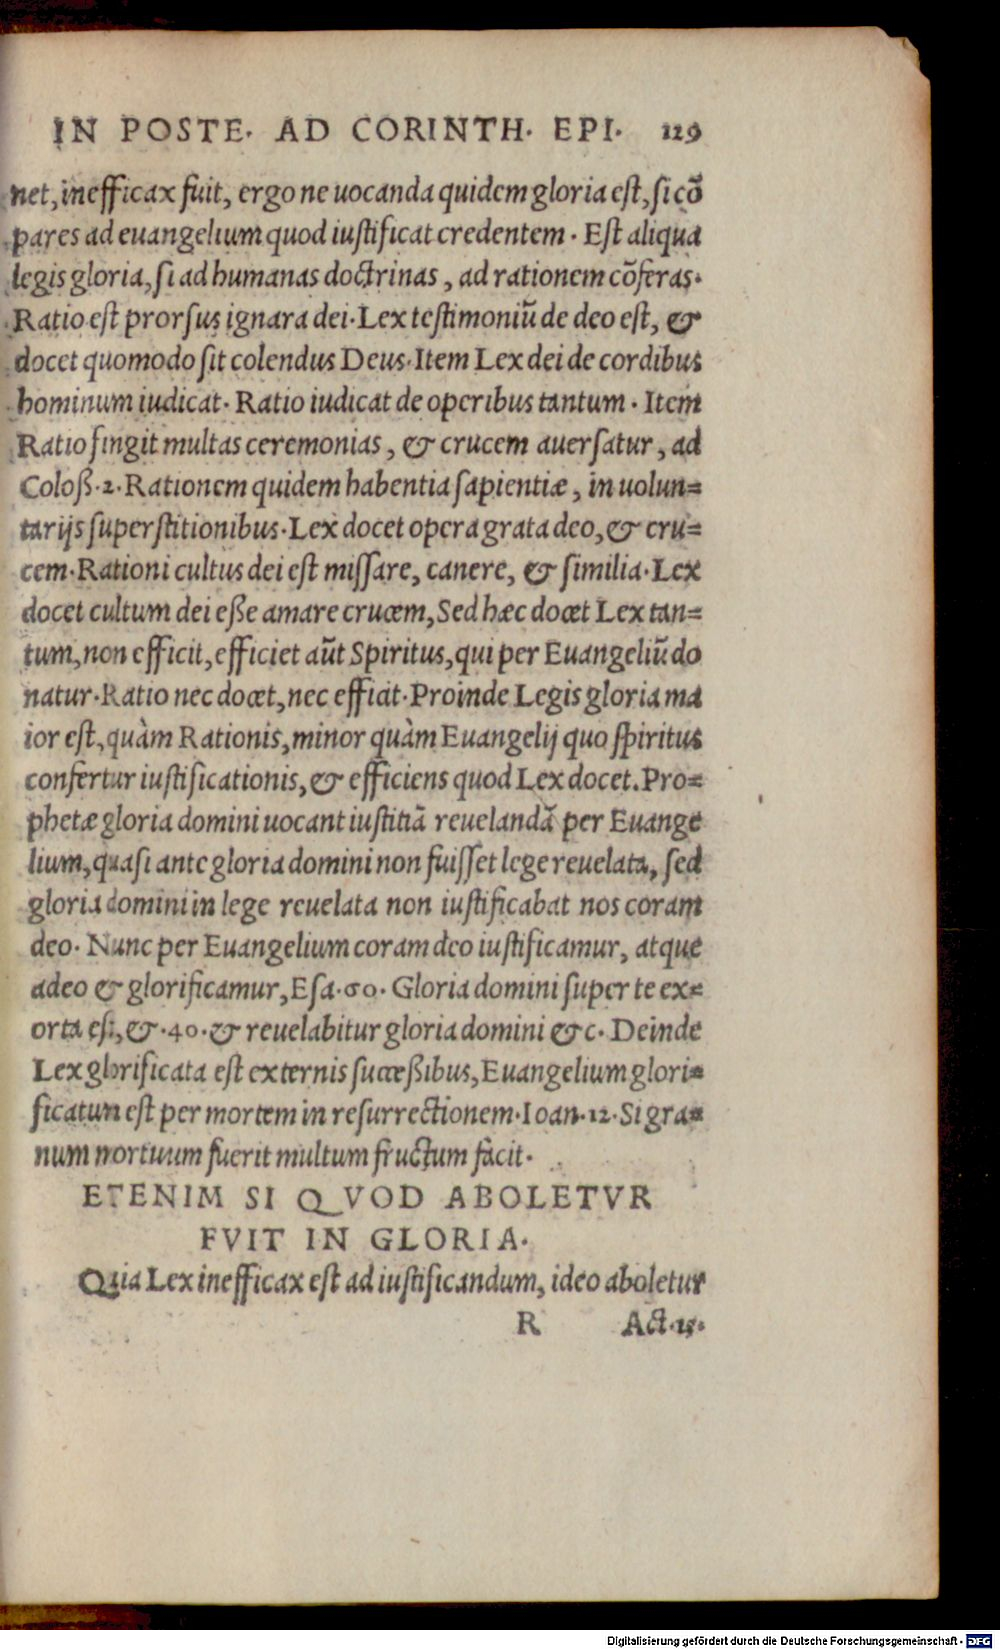 IN POSTE. AD CORINTH. EPI. 129
net, inefficax fuit, ergo ne uocanda quidem gloria est, si cõ
pares ad euangelium quod iustificat credentem. Est aliqua
legis gloria, si ad humanas doctrinas, ad rationem cõferas.
Ratio est prorsus ignara dei. Lex testimoniũ de deo est, &
docet quomodo sit colendus Deus. Item Lex dei de cordibus
hominum iudicat. Ratio iudicat de operibus tantum. Item
Ratio fingit multas ceremonias, & crucem auersatur, ad
Coloß.2. Rationem quidem habentia sapientiæ, in uolun=
tarijs superstitionibus. Lex docet opera grata deo, & cru=
cem. Rationi cultus dei est missare, canere, & similia. Lex
docet cultum dei eße amare crucem, Sed hæc docet Lex tan=
tum, non efficit, efficiet aũt Spiritus, qui per Euangeliũ do
natur. Ratio nec docet, nec efficit. Proinde Legis gloria ma
ior est, quàm Rationis, minor quàm Euangelij quo spiritus
confertur iustificationis, & efficiens quod Lex docet. Pro=
phetæ gloria domini uocant iustitiã reuelandã per Euange
lium, quasi ante gloria domini non fuisset lege reuelata, sed
gloria domini in lege reuelata non iustificabat nos coram
deo. Nunc per Euangelium coram deo iustificamur, atque
adeo & glorificamur, Esa.60. Gloria domini super te ex=
orta est, &.40.& reuelabitur gloria domini &c. Deinde
Lex glorificata est externis succeßibus, Euangelium glori=
ficatun est per mortem in resurrectionem. Ioan.12. Si gra=
num mortuum fuerit multum fructum facit.
ETENIM SI QVOD ABOLETVR
FVIT IN GLORIA.
Quia Lex inefficax est ad iustificandum, ideo aboletur
R Act.15.
Digitalisierung gefördert durch die Deutsche Forschungsgemeinschaft - DFG